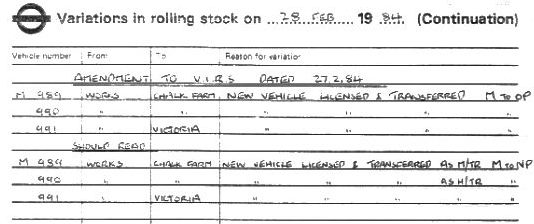 Variations in rolling stock on ... 28 FEB ... 19 84. (Continuation)
Vehicle number From To Reason for variation
AMENDMENT TO V.I.R.S DATED 27.2.84
M 989 WORKS CHALK FARM NEW VEHICLE LICENSED & TRANSFERRED M TO OP
990 " " " " " "
991 " VICTORIA " " "
SHOULD READ
M 989 WORKS CHALK FARM NEW VEHICLE LICENSED & TRANSFERRED AS M/TR M TO NP
990 " " " " " AS M/TR "
991 " VICTORIA " " " "